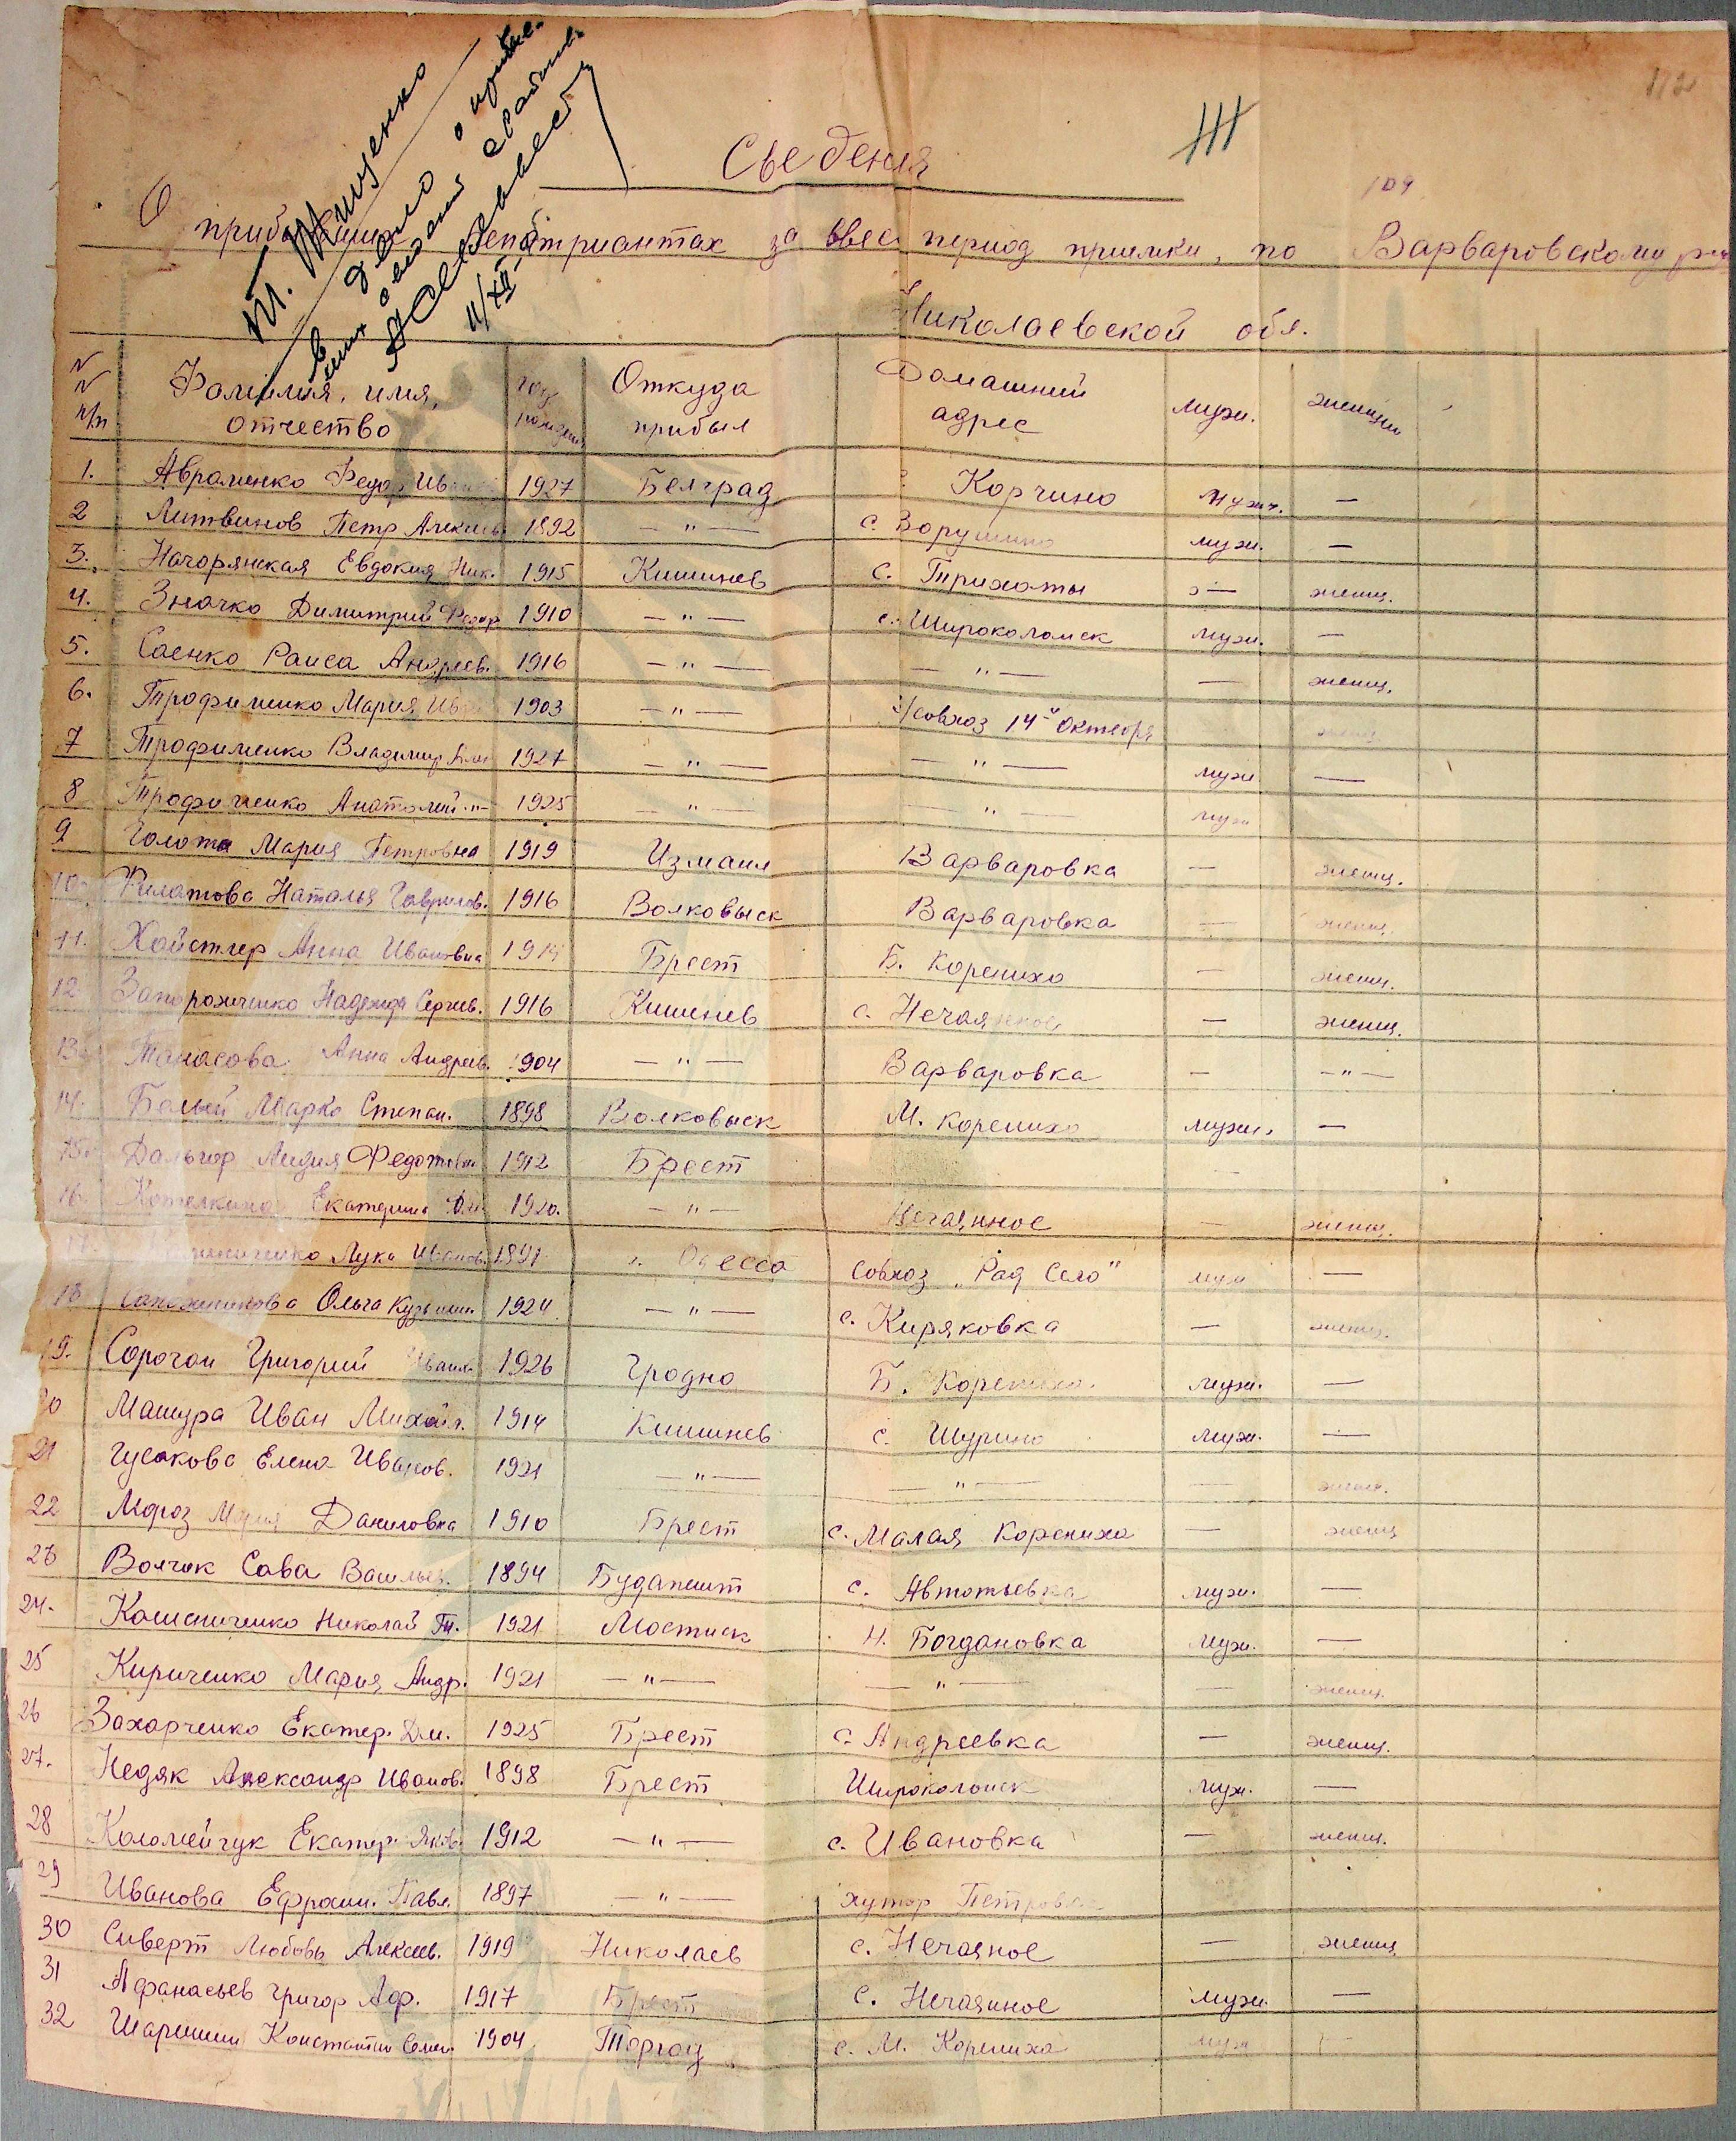 112
Т. Тищенко
В дело о прибыв-
ших
11/XII
Сведения
109
О прибывших репатриантах за ввесь период приемки, по Варваровскому р-ну
Николаевской обл.
N N п/п Фамилия, имя, отчество год рождения Откуда прибыл Домашний адрес мужч. женщин
1. Авраменко Федор Иван 1927 Белград Корчино мужч. —
2 Литвинов Петр Алексеев 1892 — " — с. мужч. —
3. Нагорянская Евдокия Ник. 1915 Кишинев с. Трихаты — женщ.
4. Значко Димитрий Федор 1910 — " — с. Широколамск мужч. —
5. Саенко Раиса Андреев. 1916 — " — — " — — женщ.
6. Трофименко Мария Ив 1903 — " — совхоз 14й Октября женщ
7 Трофименко Владимир 1927 — " — — " — мужч —
8 Трофименко Анатолий -"- 1925 — " — — " — мужч
9 Голота Мария Петровна 1919 Измаил Варваровка — женщ.
10. Филатова Наталья Гаврилов. 1916 Волковыск Варваровка — женщ.
11. Хойстлер Анна Ивановна Брест Б. Корениха — женщ.
12 Запорожченко Надежда Сергеев. 1916 Кишенев с. Нечаянное — женщ.
13. Танасова Анна Андреев. 1904 — " — Варваровка — — " —
14. Белый Марко Степан. 1898 Волковыск М. Корениха мужч. —
15. Дальгор Лидия Федотовна 1912 Брест —
16. Котелкина Екатерина 1920. — " — Нечаянное — женщ.
17. Лука Иванов. 1891 г. Одесса Совхоз „Рад Село" мужч —
18 Сапожникова Ольга Кузьмин. 1924 — " — с. Киряковка — женщ.
19. Сорочан Григорий Иван. 1926 Гродно Б. Корениха. мужч. —
20 Машура Иван Михайл. 1914 Кишинев с. Шурино мужч. —
21 Гусакова Елена Иванов. 1921 — " — — " — — женщ.
22 Мороз Мария Даниловна 1910 Брест с. Малая Корениха — женщ
23 Волчок Сава Васильев. 1894 Будапешт с. Автотьевка мужч. —
24. Колисниченко Николай 1921 Мостиск Н. Богдановка мужч. —
25 Кириченко Мария Андр. 1921 — " — — " — — женщ.
26 Захарченко Екатер. Дм. 1925 Брест с. Андреевка — женщ.
27. Недяк Александр Иванов. 1898 Брест Широколанск мужч. —
28 Коломейчук Екатер. Яков. 1912 — " — с. Ивановка — женщ.
29 Иванова Ефросин. Павл. 1897 — " — хутор Петровка
30 Сиверт Любовь Алексеев. 1919 Николаев с. Нечаяное — женщ
31 Афанасьев Григор Аф. 1917 Брест с. Нечаянное мужч. —
32 Шаршин Константин Семен. 1904 Торгау с. М. Корениха мужч —